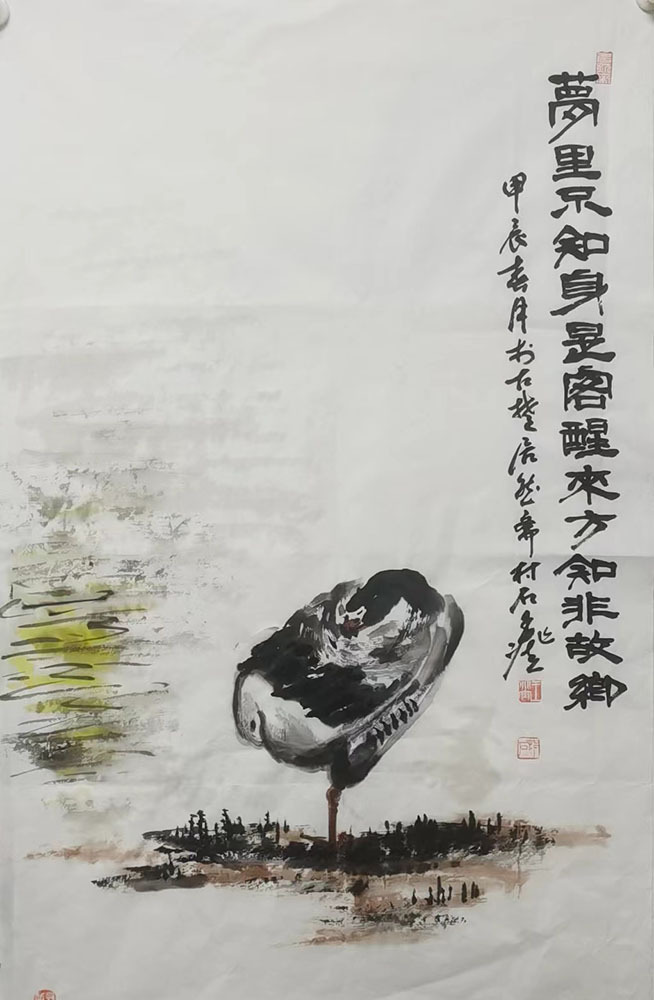 夢里不知身是客醒來方知非故鄉
甲辰春月於古楚居然齋村石